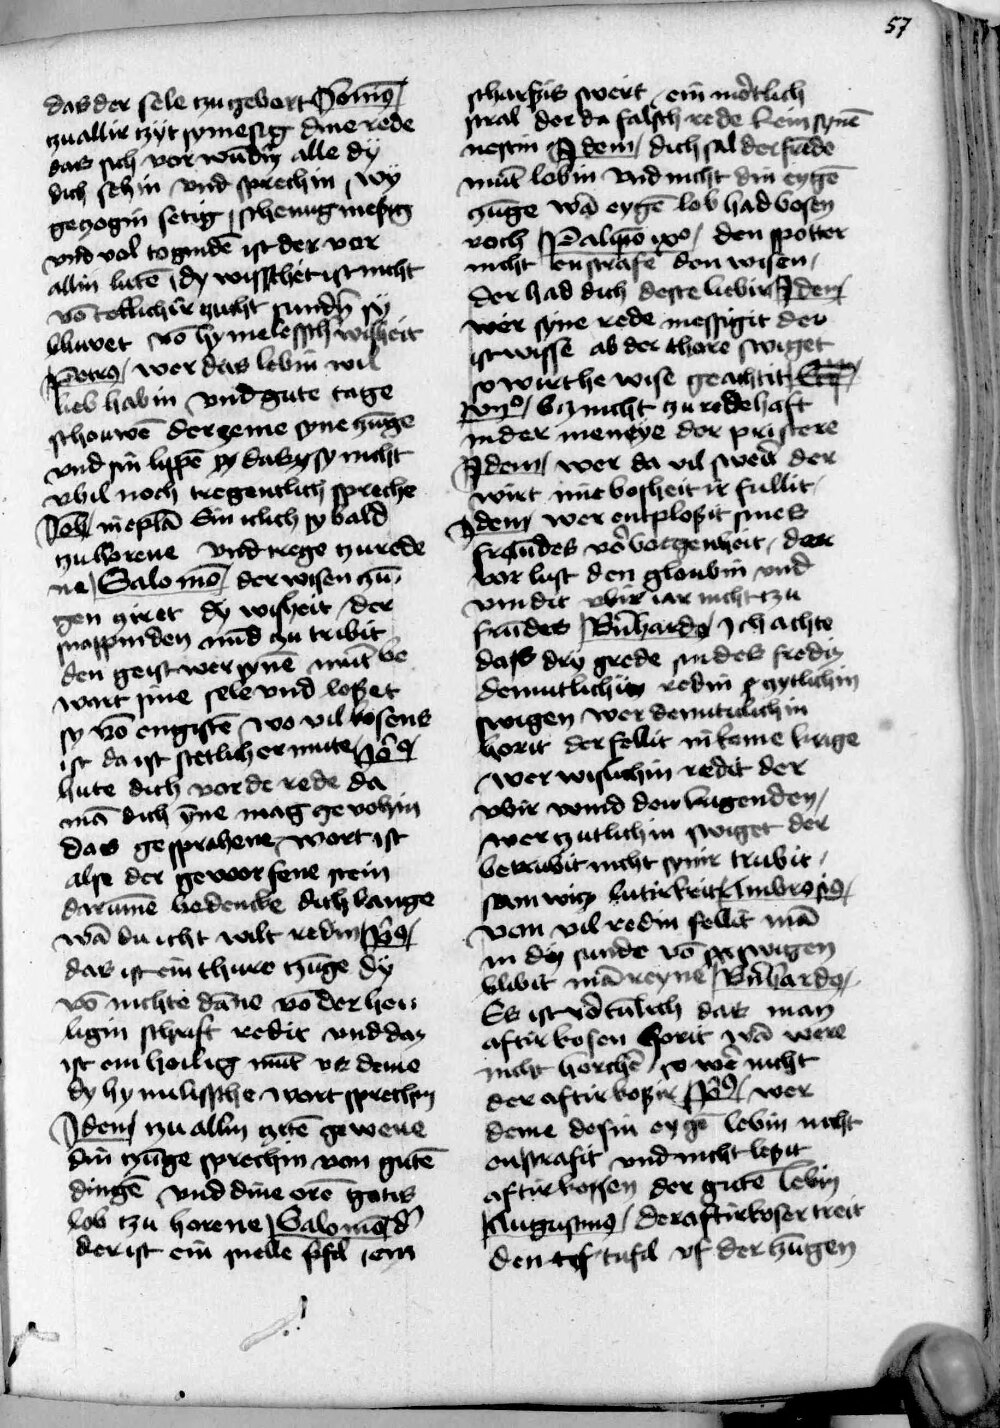 57
das der sele zugebort
zu allir zyt symesig dine rede
das sich vor wūdin alle dy
dich sehin vnd sprechin wy
gezogin setig schemig mesig
vnd vol togundē ist der vor
allin lutē dy wisscheit ist nicht
vō totlichir zucht sundīr sy
bluwet vō hymelessch wisheit
Petrus wer das lebin wil
lieb habin vnd gute tage
schouwē der zeme syne zūge
vnd sin lippē daz sy nicht
vbil noch tregentlich spreche
Iob in eplā Ein iclich sy bald
zu horene vnd trege zu rede
ne Salomō der wisen zū
gen ziret dy wisheit der
den geist wer synē mūt be
wart sine sele vnd loset
sy vō engistē wo vil kosens
ist da ist stetlich ermute
hute dich vor de rede da
mā dich yne mag gevohin
das gesprochene wort ist
alse der geworfene stein
darūme bedencke dich lange
wā du icht wilt redin
das ist ein thure zūge dy
vō nichte dāne vō der hei
ligin schrift redit vnd daz
ist ein heilig mūt vs deme
dy hymilissche wort sprechin
Idem zu allin zitē gewene
din zūge sprechin von gutē
dingē vnd dine orē gotis
lob tzu horene Salomō
der ist ein snelle pfil ein
scharfis swert ein mortlich
stral der da falsch rede kein synē
nestin Idem dich sal der frūde
mūt lobin vnd nicht din eygē
zūge wā eygē lob had bosen
roch den spotter
nicht enstrafe den wisen
der had dich deste liebir Idem
wer syne rede messigit der
ist wisse ab der thore swiget
so wirt he wise geachtit
biz nicht zu redehaft
in der meneye der pristere
Idem wer da vil swerit der
wirt mit bosheit irfullit
Idem wer entplosit sines
frūdes vorborgenheit der
vorlust den gloubin vnd
vindit vbir iar nicht tzu
frūdes Bernhardus Ich achte
das dry grede sin des fredin
demutlichin redin zytlichin
swigen wer demuticlichin
horit der fellit in keine krige
wer wislichin redit der
vbir wind den lugenden
wer zutlichin swiget der
betrubit nicht
Ambrosius
von vil redin fellit mā
in dy sunde vō swigen
blibit mā reyne Bernhardus
Es ist daz man
aftirkosen horit wā were
nicht horchē so wer nicht
der aftirkosir wer
deme do sin eygē lebin nicht
enstrafit vnd nicht lesit
aftirkossen der gutē lebin
Augustinus der aftirkoser treit
den tufil vf der zūgen